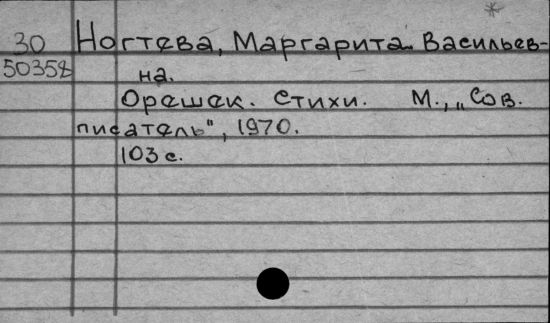 *
30 Ногтева, Маргарита Васильев-
50358 на.
Орешек. Стихи. М., „Сов.
писатель", 1970.
103 с.